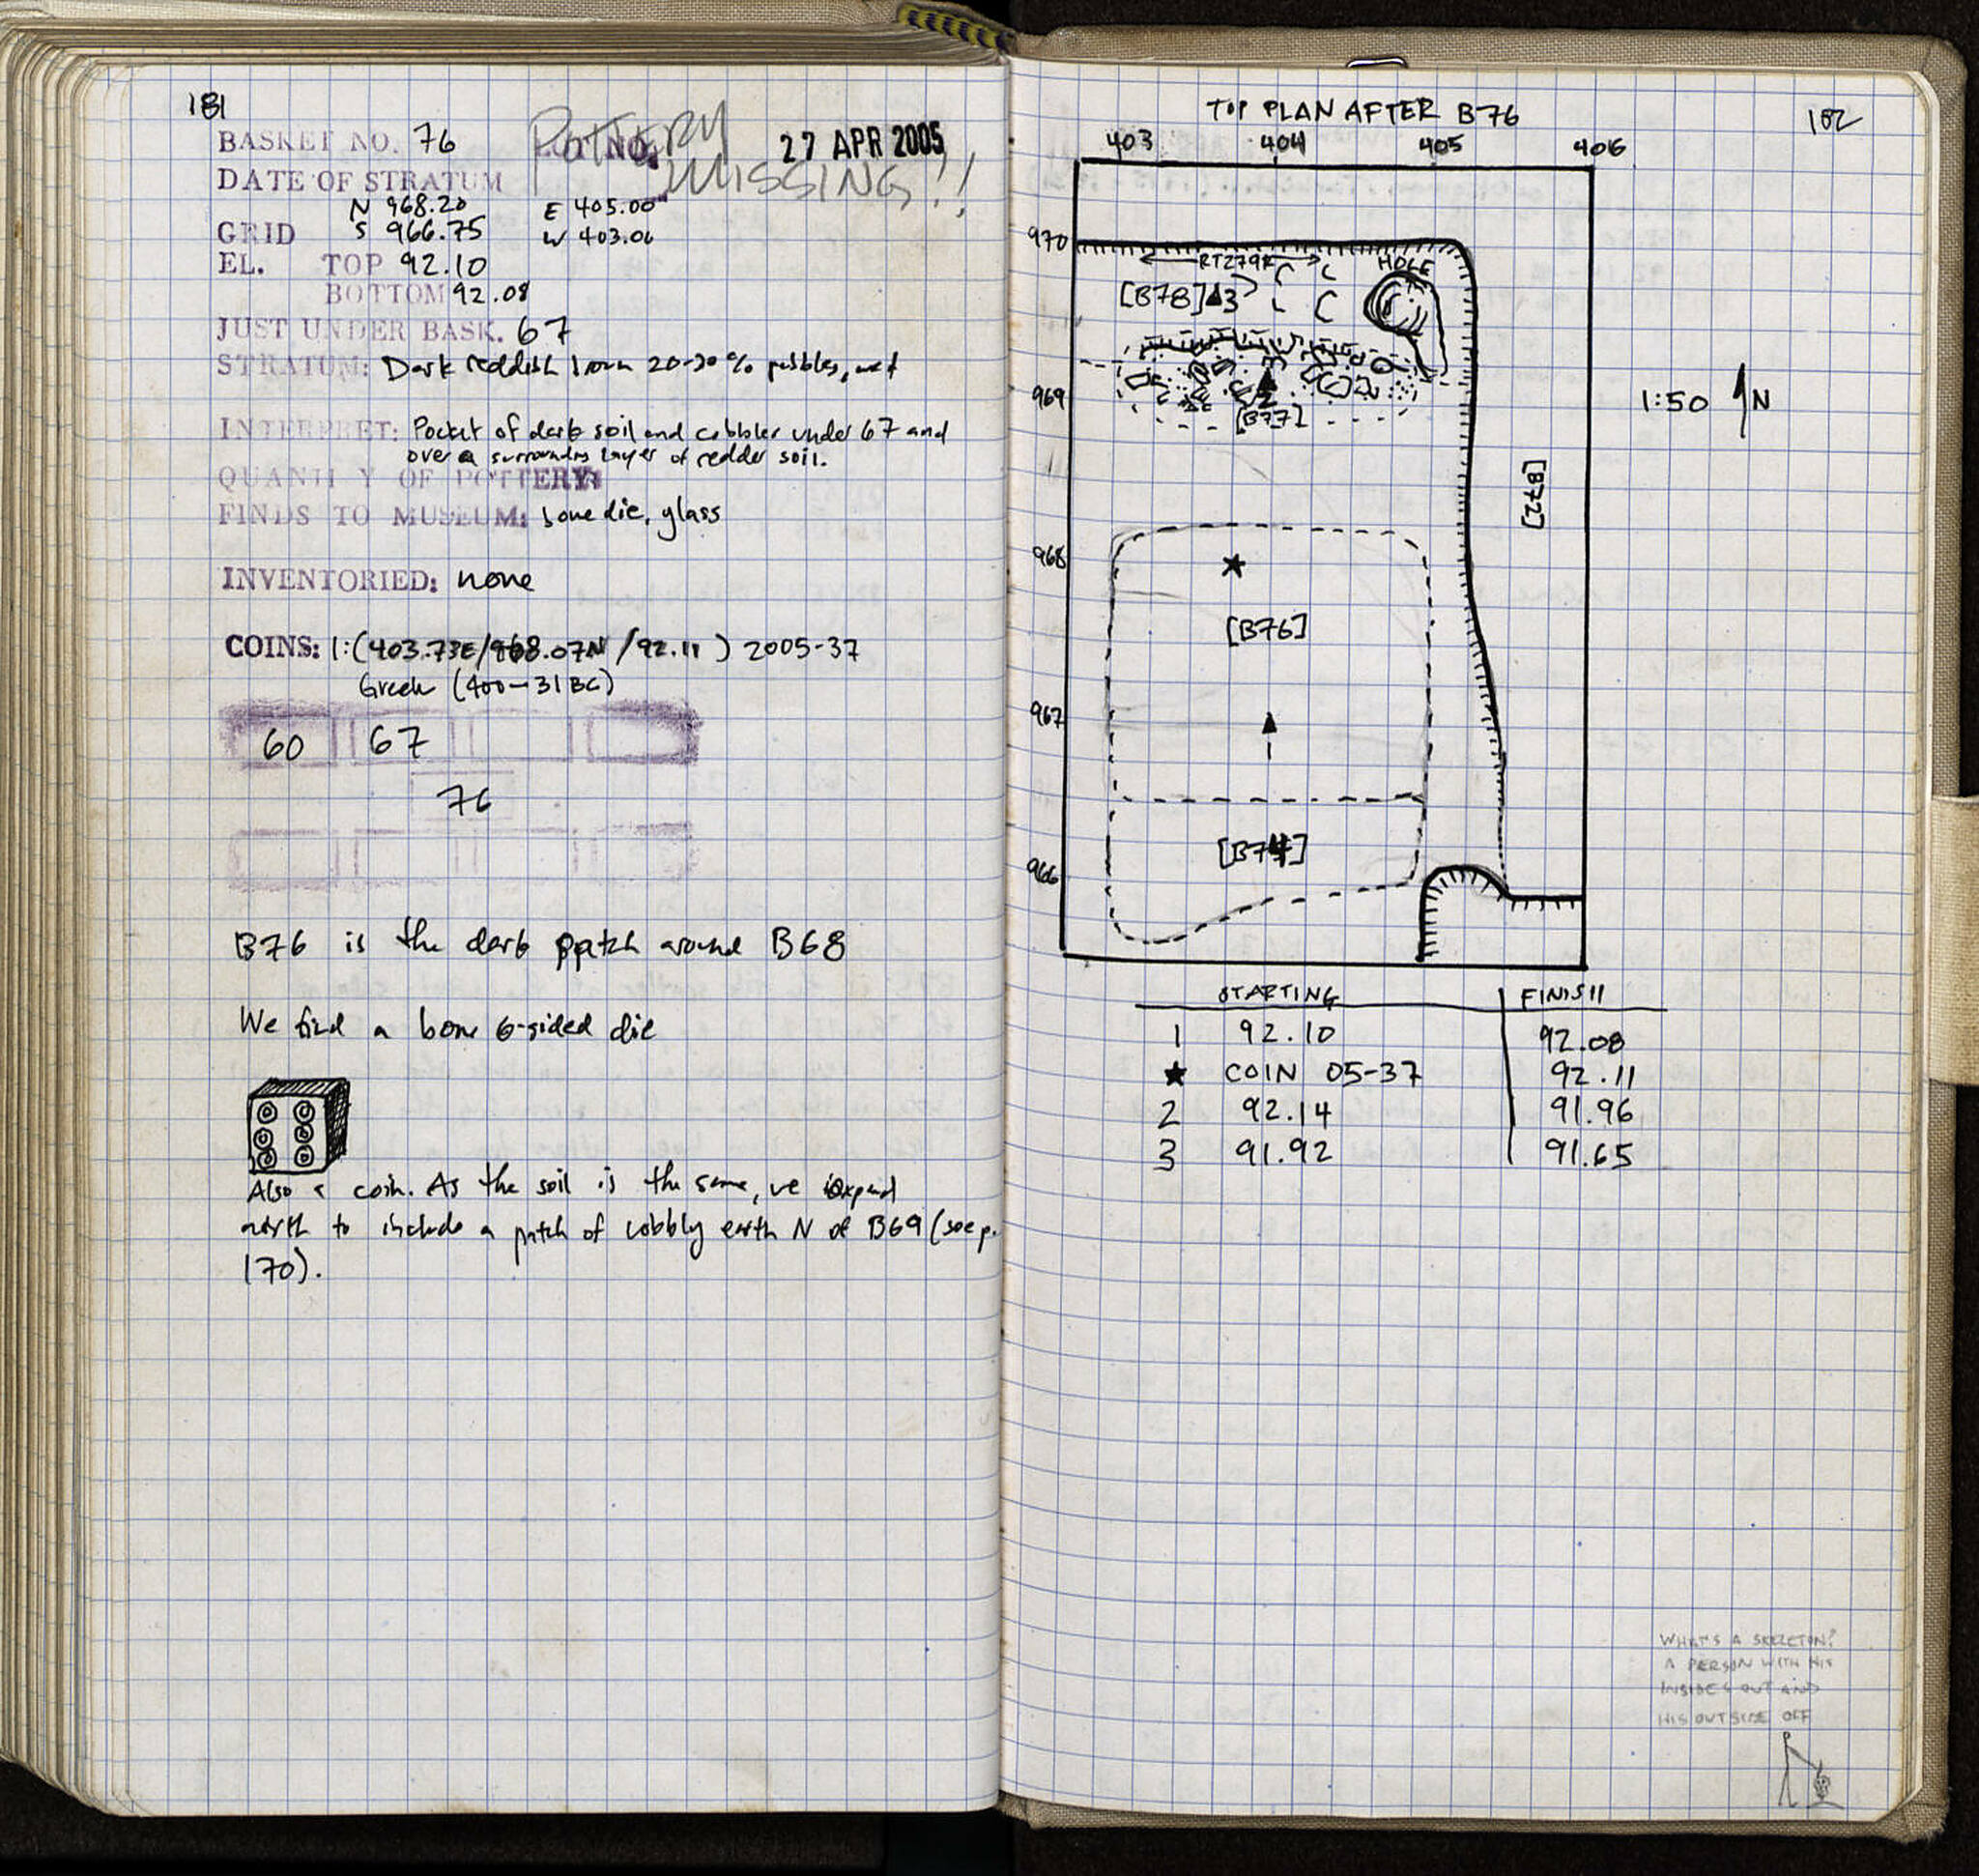 181
BASKET NO. 76
POTTERY MISSING!!
LOT NO.
27 APR 2005
DATE OF STRATUM
N 968.20 E 405.00
GRID S 966.75 W 403.00
EL. TOP 92.10
BOTTOM 92.08
JUST UNDER BASK. 67
STRATUM: Dark reddish brown 20-30% pebbles, wet
INTERPRET: Pocket of dark soil and cobbles under 67 and
over a surrounding layer of redder soil.
QUANTITY OF POTTERY:
FINDS TO MUSEUM: bone die, glass
INVENTORIED: none
COINS: 1:(403.73E/968.07N/92.11) 2005-37
Greek (400-31 BC)
60 67
76
B76 is the dark patch around B68
We find a bone 6-sided die
Also a coin. As the soil is the same, we expand
north to include a patch of cobbly earth N of B69 (see p.
170).
TOP PLAN AFTER B76
182
403 404 405 406
970
RT279R
HOLE
[B78] 3
969
2
[B77]
1:50 N
[B72]
968
[B76]
967
1
[B74]
966
STARTING FINISH
1 92.10 92.08
★ COIN 05-37 92.11
2 92.14 91.96
3 91.92 91.65
WHAT'S A SKELETON?
A PERSON WITH HIS
INSIDES OUT AND
HIS OUTSIDE OFF